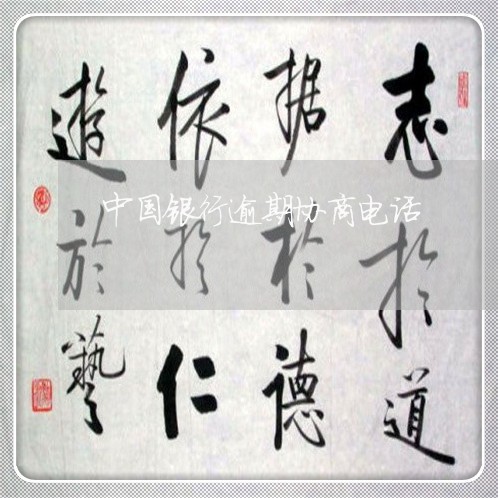 志於道
据於德
依於仁
遊於藝
中国银行逾期协商电话